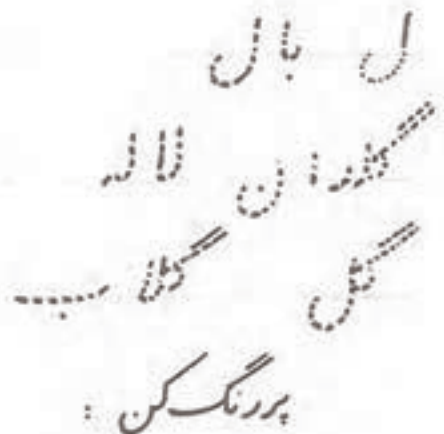 ل بال
گلدان لاله
گل گلاب
پررنگ کن :